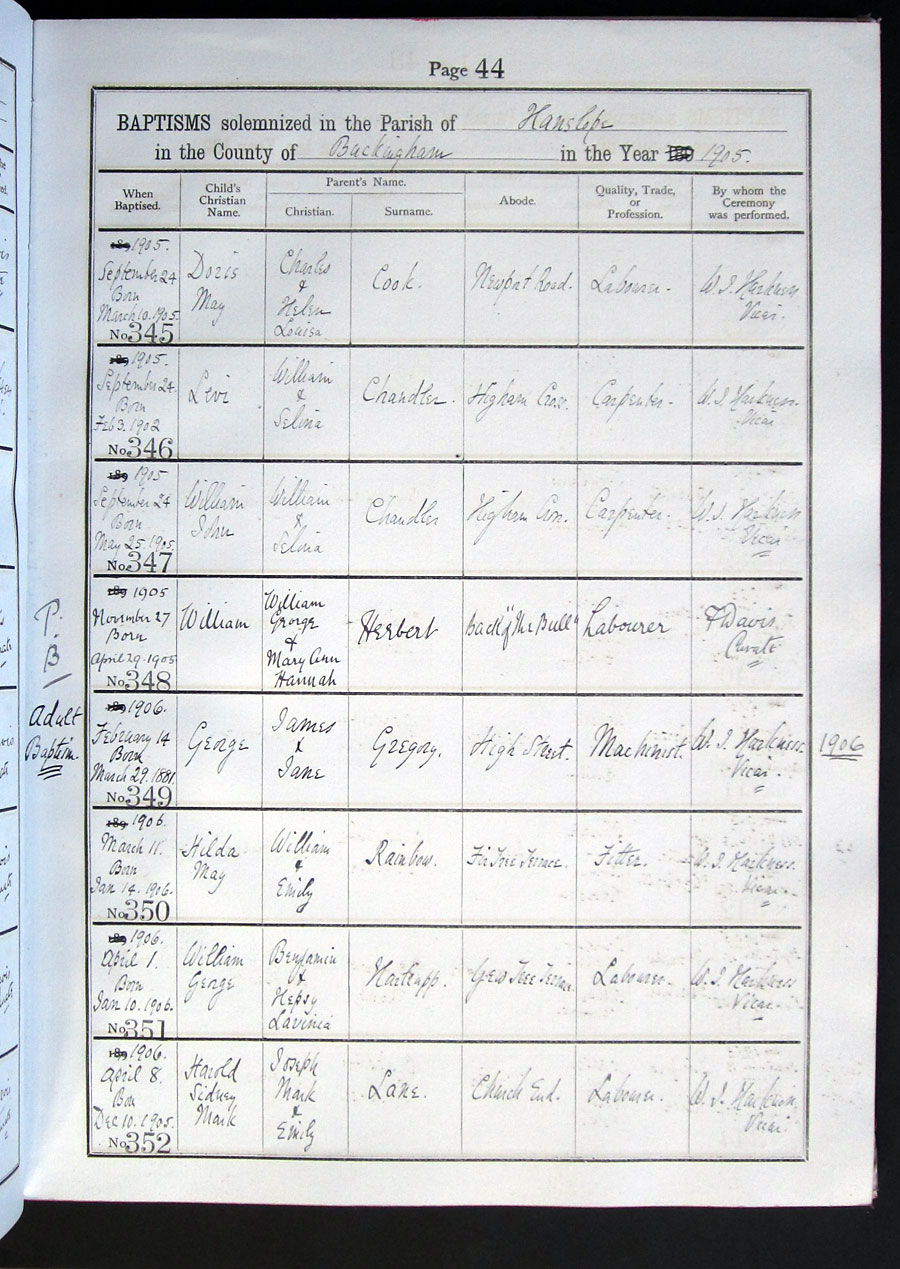 Page 44
BAPTISMS solemnized in the Parish of Hanslope
in the County of Buckingham in the Year 189 1905.
When Baptised.
Child's Christian Name.
Parent's Name.
Christian.
Surname.
Abode.
Quality, Trade, or Profession.
By whom the Ceremony was performed.
189 1905.
September 24
Born
March 10. 1905.
No. 345
Doris
May
Charles
&
Helen
Louisa
Cook.
Newport Road.
Labourer.
W. J. Harkness
Vicar.
189 1905.
September 24.
Born
Feb 3. 1902
No. 346
Levi
William
&
Selina
Chandler.
Higham Cross.
Carpenter.
W. J. Harkness.
Vicar
189 1905
September 24
Born
May 25. 1905.
No. 347
William
John
William
&
Selina
Chandler
Higham Cross.
Carpenter.
W. J. Harkness
Vicar
P.
B
189 1905
November 27
Born
April 29. 1905
No. 348
William
William
George
&
Mary Ann
Hannah
Herbert
Back of "The Bull"
Labourer
Davis
Curate
Adult
Baptism.
189 1906.
February 14
Born
March 29. 1881.
No. 349
George
James
&
Jane
Gregory.
High Street.
Machinist.
W. J. Harkness.
Vicar.
1906
189 1906.
March 11.
Born
Jan 14. 1906.
No. 350
Hilda
May
William
&
Emily
Rainbow.
Fir Tree Terrace.
Fitter.
W. J. Harkness.
Vicar.
189 1906.
April 1.
Born
Jan 10. 1906.
No. 351
William
George
Benjamin
&
Hepsy
Lavinia
Hartupp.
Yew Tree Terrace.
Labourer.
W. J. Harkness
Vicar.
189 1906.
April 8.
Born
Dec 10. 1905.
No. 352
Harold
Sidney
Mark
Joseph
Mark
&
Emily
Lane.
Church End.
Labourer.
W. J. Harkness.
Vicar.